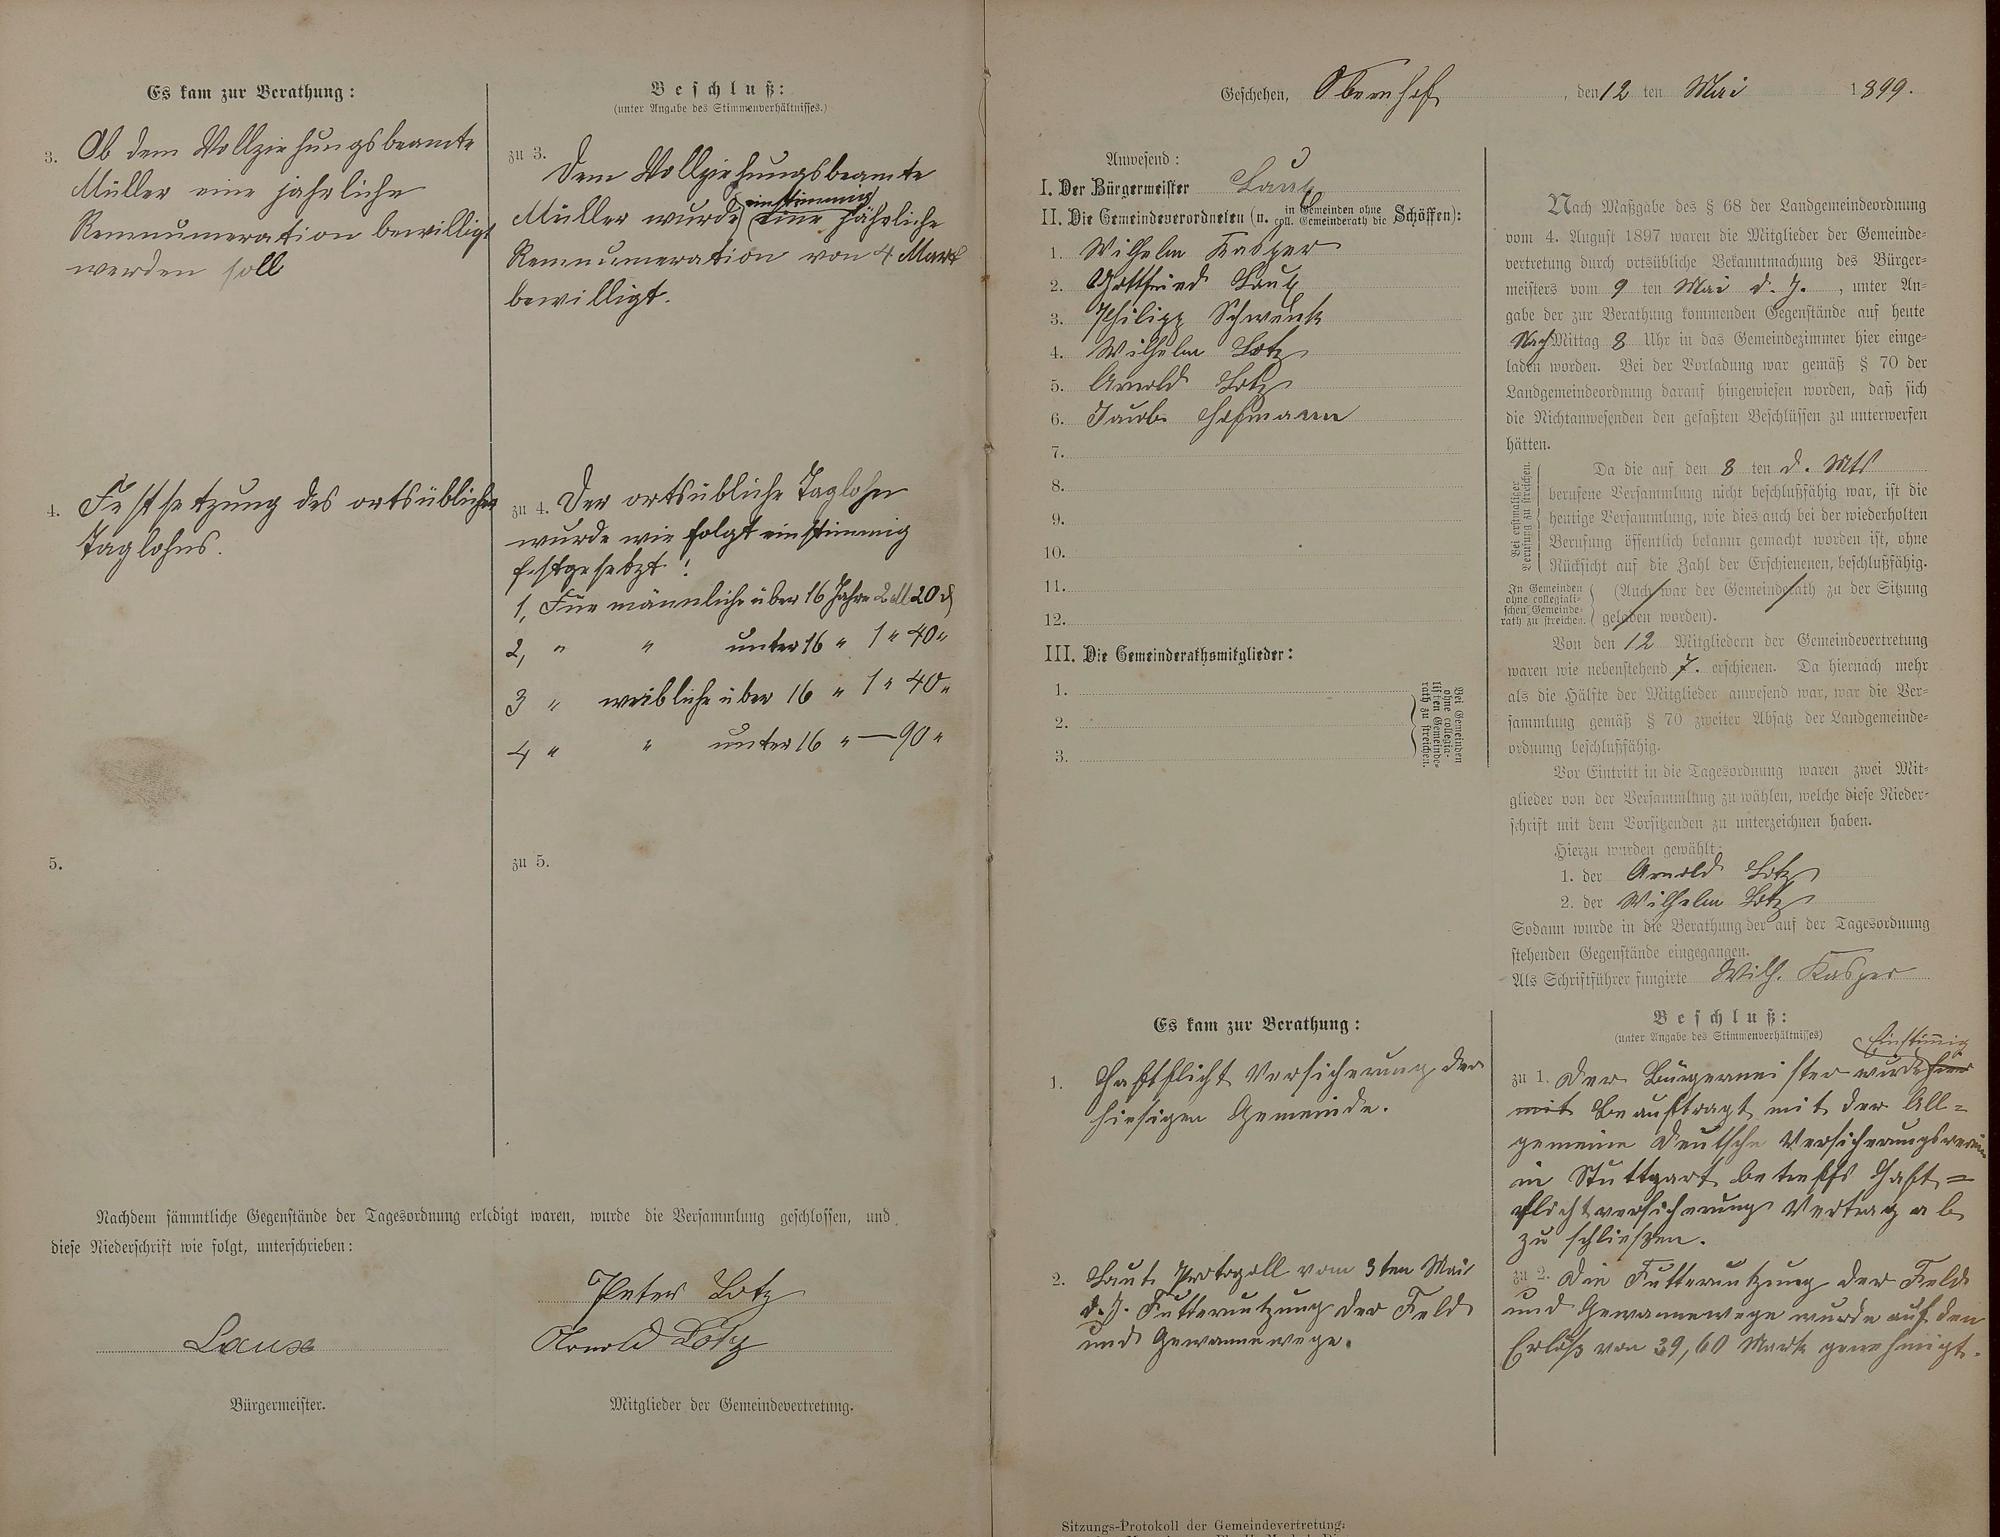 Es kam zur Berathung:
3. Ob dem Vollziehungsbeamte
Müller eine jahrliche
Remnumeration bewilligt
werden soll
4. Festsetzung des ortsüblichen
Taglohns.
5.
Beschluß:
(unter Angabe des Stimmenverhältnisses.)
zu 3. Dem Vollziehungsbeamte
einstimmig
Müller wurde eine jährliche
Remnumeration von 4 Mark
bewilligt.
zu 4. Der ortsübliche Taglohn
wurde wie folgt einstimmig
festgesetzt:
1, Für männliche über 16 Jahre 2 M 20 d
2, " " unter 16 " 1 " 40 "
3 " weibliche über 16 " 1 " 40 "
4 " " unter 16 " — 90 "
zu 5.
Nachdem sämmtliche Gegenstände der Tagesordnung erledigt waren, wurde die Versammlung geschlossen, und
diese Niederschrift wie folgt, unterschrieben:
Peter Lotz
Arnold Lotz
Bürgermeister.
Mitglieder der Gemeindevertretung.
Geschehen, Obernhof, den 12 ten Mai 1899.
Anwesend:
I. Der Bürgermeister
II. Die Gemeindeverordneten (u. in Gemeinden ohne coll. Gemeinderath die Schöffen):
1. Wilhelm Kasper
2. Gottfried
3. Philipp Schwenk
4. Wilhelm Lotz
5. Arnold Lotz
6. Jacob Hofmann
7.
8.
9.
10.
11.
12.
III. Die Gemeinderathsmitglieder:
1.
2.
3.
Bei Gemeinden
ohne collegia-
lischen Gemeinde-
rath zu streichen.
Nach Maßgabe des § 68 der Landgemeindeordnung
vom 4. August 1897 waren die Mitglieder der Gemeinde-
vertretung durch ortsübliche Bekanntmachung des Bürger-
meisters vom 9 ten Mai d. J., unter An-
gabe der zur Berathung kommenden Gegenstände auf heute
Nach Mittag 8 Uhr in das Gemeindezimmer hier einge-
laden worden. Bei der Vorladung war gemäß § 70 der
Landgemeindeordnung darauf hingewiesen worden, daß sich
die Nichtanwesenden den gefaßten Beschlüssen zu unterwerfen
hätten.
Bei erstmaliger
Berufung zu streichen.
Da die auf den 8 ten d. Mts
berufene Versammlung nicht beschlußfähig war, ist die
heutige Versammlung, wie dies auch bei der wiederholten
Berufung öffentlich bekannt gemacht worden ist, ohne
Rücksicht auf die Zahl der Erschienenen, beschlußfähig.
In Gemeinden
ohne collegiali-
schen Gemeinde-
rath zu streichen.
(Auch war der Gemeinderath zu der Sitzung
geladen worden).
Von den 12 Mitgliedern der Gemeindevertretung
waren wie nebenstehend 7. erschienen. Da hiernach mehr
als die Hälfte der Mitglieder anwesend war, war die Ver-
sammlung gemäß § 70 zweiter Absatz der Landgemeinde-
ordnung beschlußfähig.
Vor Eintritt in die Tagesordnung waren zwei Mit-
glieder von der Versammlung zu wählen, welche diese Nieder-
schrift mit dem Vorsitzenden zu unterzeichnen haben.
Hierzu wurden gewählt:
1. der Arnold Lotz
2. der Wilhelm Lotz
Sodann wurde in die Berathung der auf der Tagesordnung
stehenden Gegenstände eingegangen.
Als Schriftführer fungirte Wilh. Kasper
Es kam zur Berathung:
1. Haftflicht Versicherung der
hiesigen Gemeinde.
2. Laut Protogoll vom 3ten Mai
d. J. Futternutzung der Feld
und Gewannewege.
Beschluß:
(unter Angabe des Stimmenverhältnisses)
Einstimig
zu 1. Der Bürgermeister wurde
mit beauftragt mit der All=
gemeine Deutsche Versicherungsverein
in Stuttgart betreffs Haft=
flichtversicherung Vertrag ab
zu schließen.
zu 2. Die Futternutzung der Feld
und Gewannewege wurde auf den
Erlöß von 39,60 Mark genehmigt.
Sitzungs-Protokoll der Gemeindevertretung: